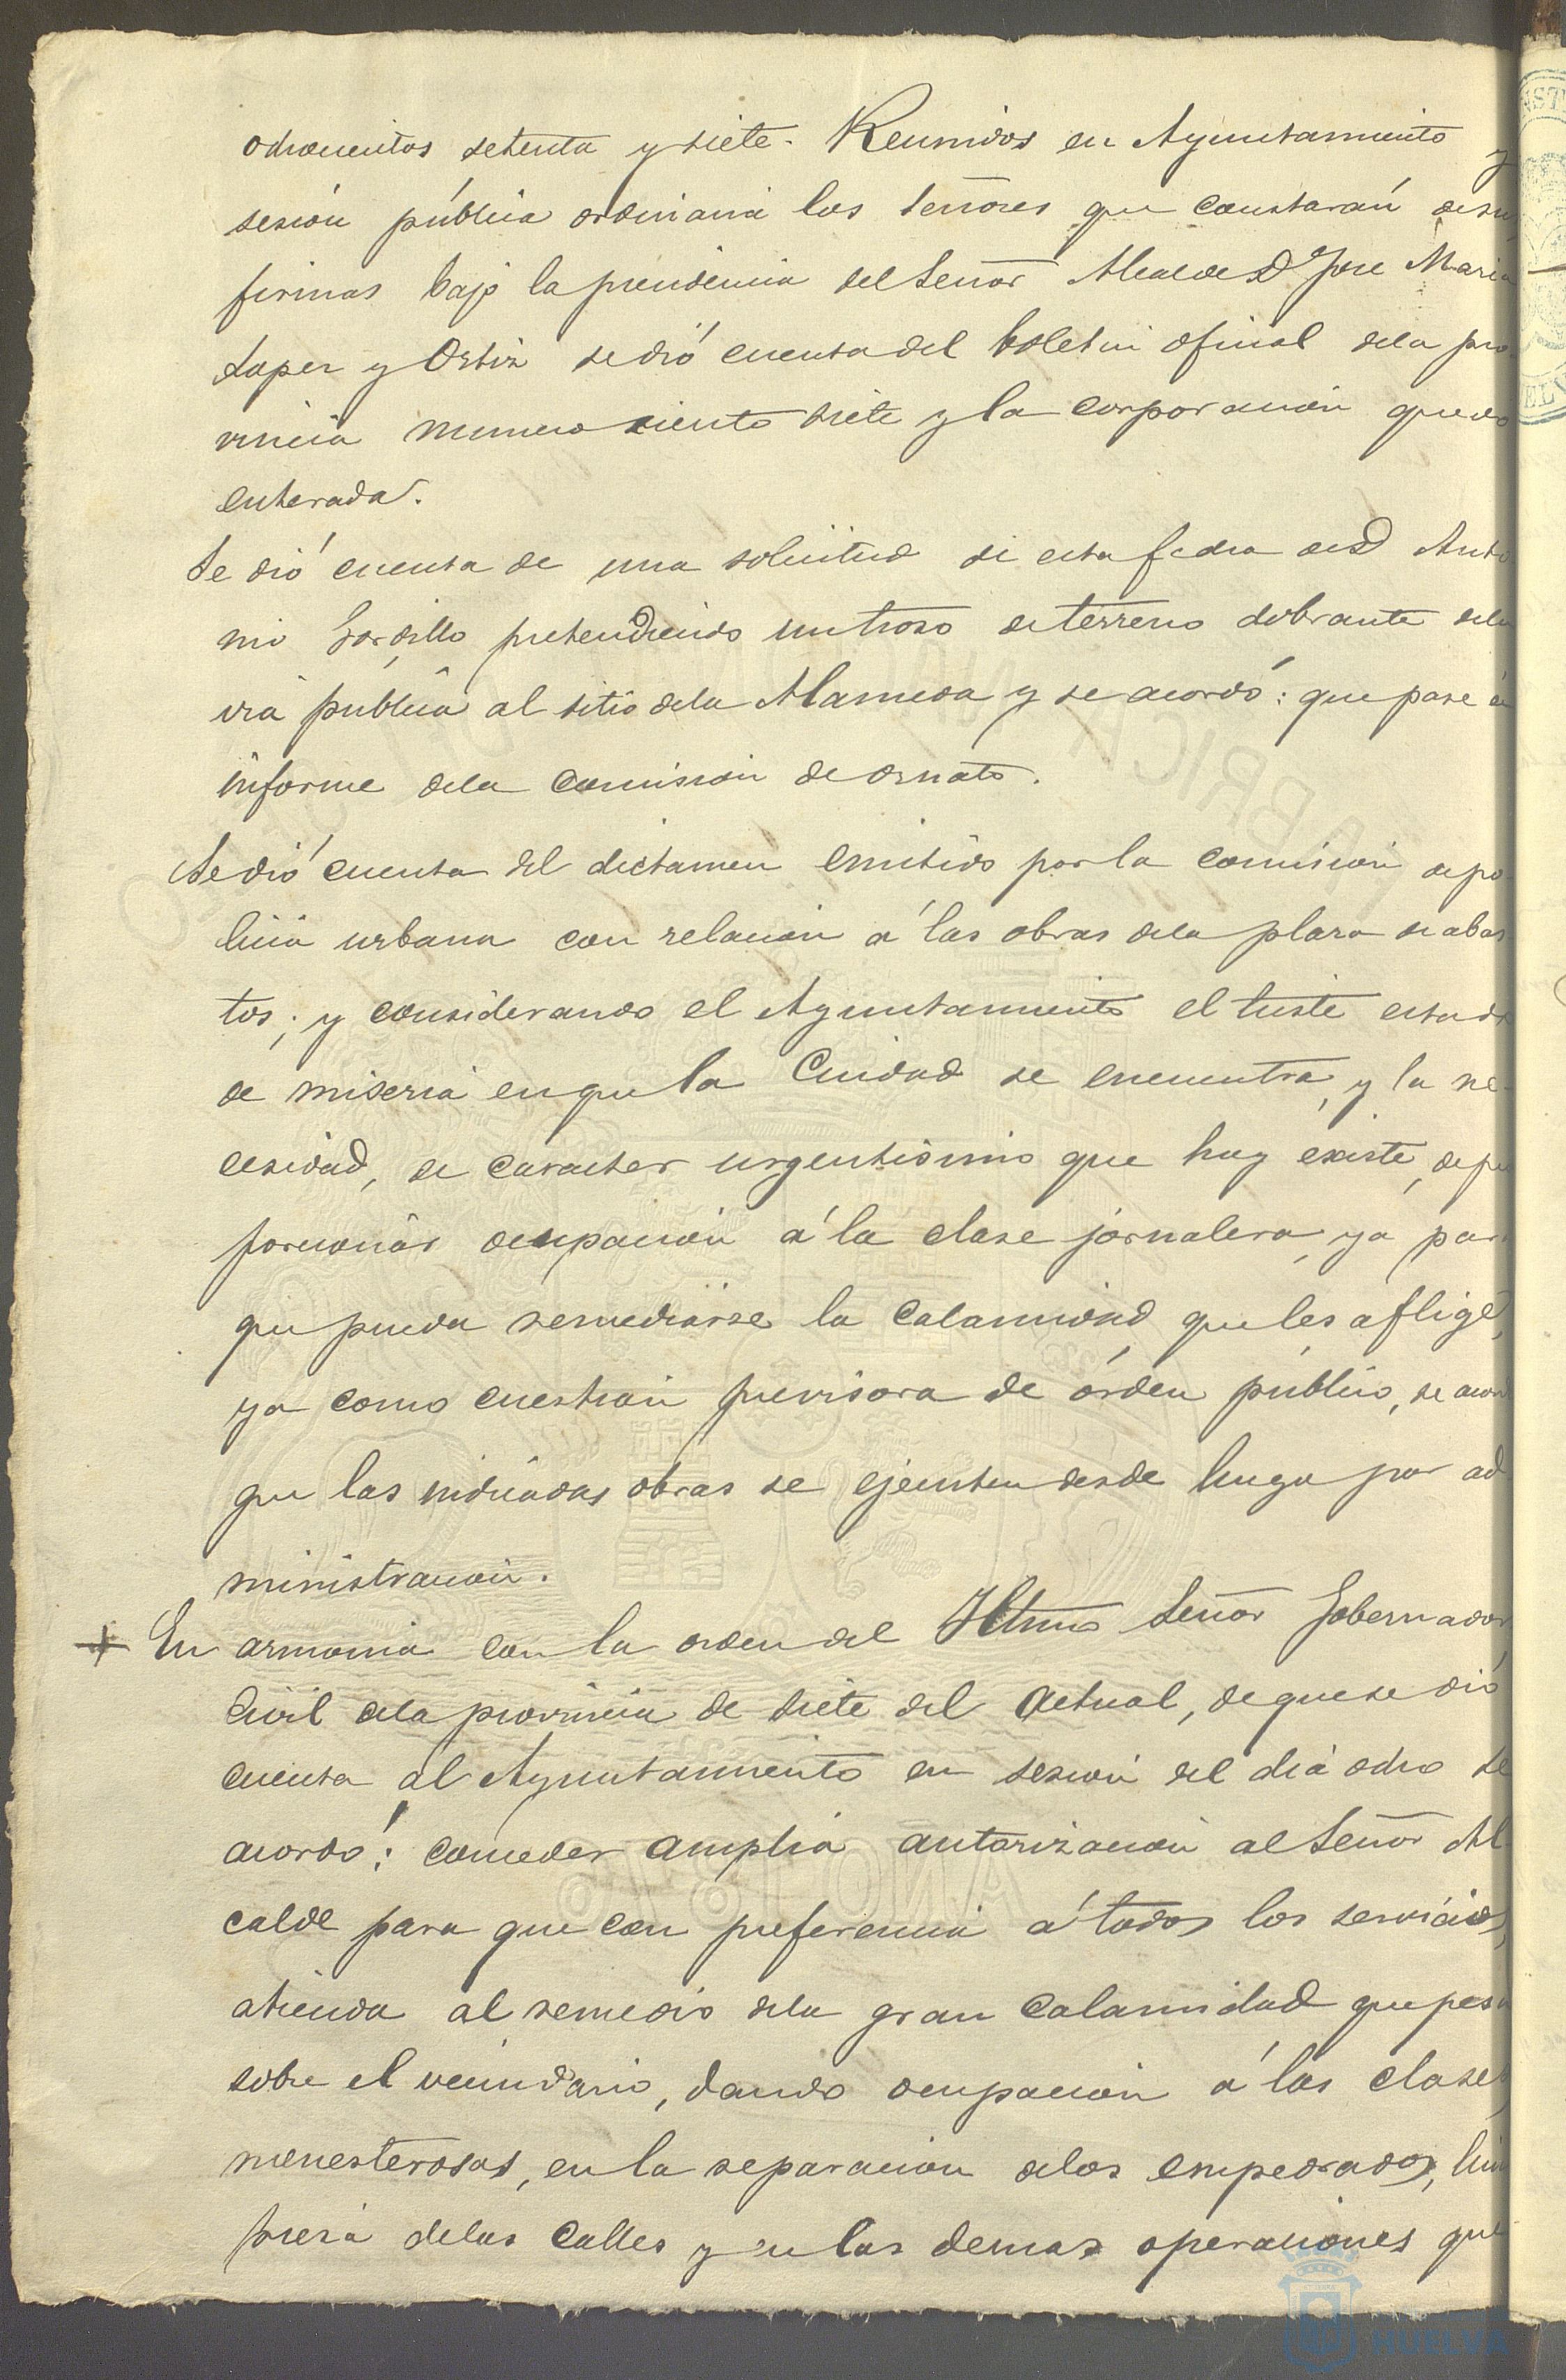 ochocientos setenta y siete. Reunidos en Ayuntamiento y
sesión pública ordinaria los Señores que constarán de sus
firmas bajo la presidencia del Señor Alcalde D Jose Maria
Lopez y Ortiz se dió cuenta del boletin oficial dela pro
vincia numero ciento siete y la corporacion quedo
enterada.
Se dió cuenta de una solicitud de esta fecha de D Anto
nio Gordillo pretendiendo un trozo de terreno sobrante dela
via pública al sitio dela Alameda y se acordó: que pase á
informe dela Comision de ornato.
Se dió cuenta del dictamen emitido por la comision de po
licia urbana con relacion á las obras dela plaza de abas
tos; y considerando el Ayuntamiento el triste estado
de miseria en que la Ciudad se encuentra, y la ne
cesidad, de caracter urgentisimo que hoy existe, de pro
porcionar ocupacion á la clase jornalera, ya para
que pueda remediarse la calamidad que les aflige,
ya como cuestion previsora de órden público, se acordó
que las indicadas obras se ejecuten desde luego por ad
ministracion.
+ En armonia con la orden del Iltmo Señor Gobernador
Civil dela provincia de siete del actual, de que se dió
cuenta al Ayuntamiento en sesion del dia ocho se
acordó: conceder amplia autorizacion al Señor Al
calde para que con preferencia á todos los servicios,
atienda al remedio dela gran calamidad que pesa
sobre el vecindario, dando ocupacion á las clases
menesterosas, en la reparacion delos empedrados, lim
pieza delas calles y en las demas operaciones que
FABRICA NAC
AÑO 1878
HUELVA